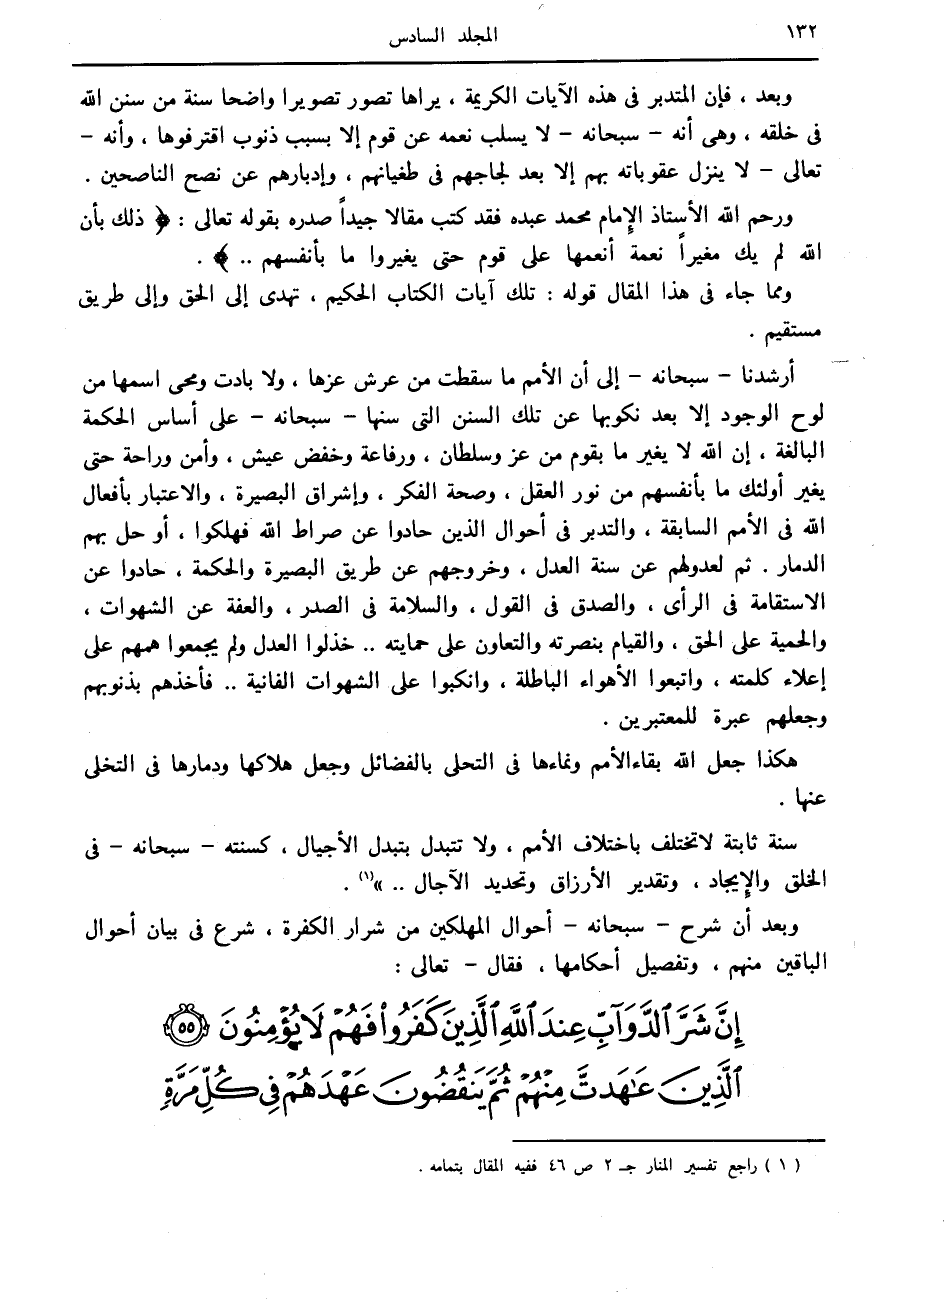 ١٣٢
المجلد السادس
وبعد ، فإن المتدبر فى هذه الآيات الكريمة ، يراها تصور تصويرا واضحا سنة من سنن الله
فى خلقه ، وهى أنه – سبحانه – لا يسلب نعمه عن قوم إلا بسبب ذنوب اقترفوها ، وأنه –
تعالى – لا ينزل عقوباته بهم إلا بعد لجاجهم فى طغيانهم ، وإدبارهم عن نصح الناصحين .
ورحم الله الأستاذ الإمام محمد عبده فقد كتب مقالا جيداً صدره بقوله تعالى : ﴿ ذلك بأن
الله لم يك مغيراً نعمة أنعمها على قوم حتى يغيروا ما بأنفسهم .. ﴾ .
ومما جاء فى هذا المقال قوله : تلك آيات الكتاب الحكيم ، تهدى إلى الحق وإلى طريق
مستقيم .
أرشدنا – سبحانه – إلى أن الأمم ما سقطت من عرش عزها ، ولا بادت ومحى اسمها من
لوح الوجود إلا بعد نكوبها عن تلك السنن التى سنها – سبحانه – على أساس الحكمة
البالغة ، إن الله لا يغير ما بقوم من عز وسلطان ، ورفاعة وخفض عيش ، وأمن وراحة حتى
يغير أولئك ما بأنفسهم من نور العقل ، وصحة الفكر ، وإشراق البصيرة ، والاعتبار بأفعال
الله فى الأمم السابقة ، والتدبر فى أحوال الذين حادوا عن صراط الله فهلكوا ، أو حل بهم
الدمار . ثم لعدولهم عن سنة العدل ، وخروجهم عن طريق البصيرة والحكمة ، حادوا عن
الاستقامة فى الرأى ، والصدق فى القول ، والسلامة فى الصدر ، والعفة عن الشهوات ،
والحمية على الحق ، والقيام بنصرته والتعاون على حمايته .. خذلوا العدل ولم يجمعوا هممهم على
إعلاء كلمته ، واتبعوا الأهواء الباطلة ، وانكبوا على الشهوات الفانية .. فأخذهم بذنوبهم
وجعلهم عبرة للمعتبرين .
هكذا جعل الله بقاءالأمم ونماءها فى التحلى بالفضائل وجعل هلاكها ودمارها فى التخلى
عنها .
سنة ثابتة لاتختلف باختلاف الأمم ، ولا تتبدل بتبدل الأجيال ، كسنته – سبحانه – فى
الخلق والإيجاد ، وتقدير الأرزاق وتحديد الآجال .. »(١) .
وبعد أن شرح – سبحانه – أحوال المهلكين من شرار الكفرة ، شرع فى بيان أحوال
الباقين منهم ، وتفصيل أحكامها ، فقال – تعالى :
إِنَّ شَرَّ ٱلدَّوَآبِّ عِندَ ٱللَّهِ ٱلَّذِينَ كَفَرُوا۟ فَهُمْ لَا يُؤْمِنُونَ ٥٥
ٱلَّذِينَ عَـٰهَدتَّ مِنْهُمْ ثُمَّ يَنقُضُونَ عَهْدَهُمْ فِى كُلِّ مَرَّةٍ
( ١ ) راجع تفسير المنار جـ ٢ ص ٤٦ ففيه المقال بتمامه .